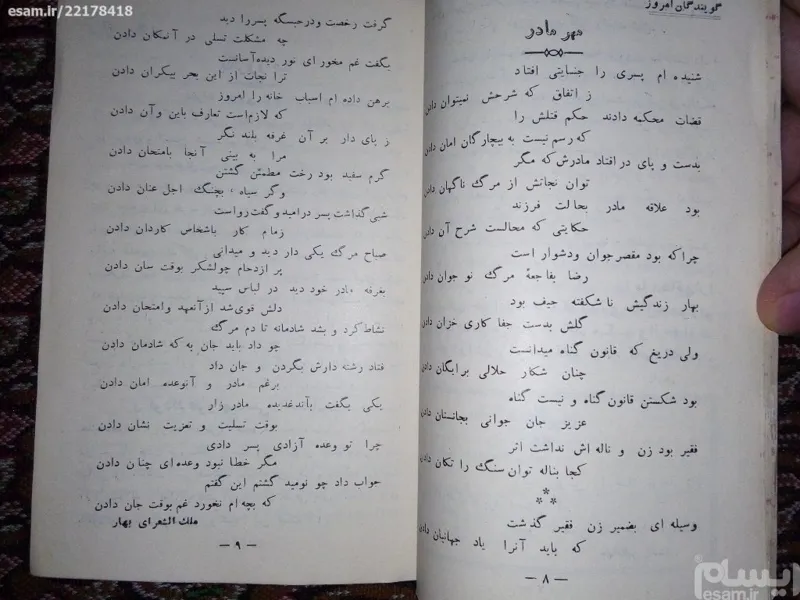 گویندگان امروز
مهر مادر
شنیده ام پسری را جنایتی افتاد
ز اتفاق که شرحش نمیتوان دادن
قضات محکمه دادند حکم قتلش را
که رسم نیست به بیچارگان امان دادن
بدست و پای در افتاد مادرش که مگر
توان نجاتش از مرگ ناگهان دادن
بود علاقه مادر بحالت فرزند
حکایتی که محالست شرح آن دادن
چرا که بود مقصر جوان ودشوار است
رضا بفاجعهٔ مرگ نو جوان دادن
بهار زندگیش ناشکفته حیف بود
گلش بدست جفا کاری خزان دادن
ولی دریغ که قانون گناه میدانست
چنان شکار حلالی برایگان دادن
بود شکستن قانون گناه و نیست گناه
عزیز جان جوانی بجانستان دادن
فقیر بود زن و ناله اش نداشت اثر
کجا بناله توان سنگ را تکان دادن
***
وسیله ای بضمیر زن فقیر گذشت
که باید آنرا یاد جهانیان دادن
— ۸ —
گرفت رخصت ودرحبسگه پسررا دید
چه مشکلست تسلی در آنمکان دادن
بگفت غم مخور ای نور دیده آسانست
ترا نجات از این بحر بیکران دادن
برهن داده ام اسباب خانه را امروز
که لازم است تعارف باین وآن دادن
ز پای دار بر آن غرفه بلند نگر
مرا به بینی آنجا بامتحان دادن
گرم سفید بود رخت مطمئن گشتن
وگر سیاه ، بچنگ اجل عنان دادن
شبی گذاشت پسر درامید و گفت رواست
زمام کار باشخاص کاردان دادن
صباح مرگ یکی دار دید و میدانی
پر ازدحام چولشکر بوقت سان دادن
بغرفه مادر خود دید در لباس سپید
دلش قوی شد ازآنعهد وامتحان دادن
نشاط کرد و بشد شادمانه تا دم مرگ
چو داد باید جان به که شادمان دادن
فتاد رشته دارش بگردن و جان داد
برغم مادر و آنوعده امان دادن
یکی بگفت بآندغدیده مادر زار
بوقت تسلیت و تعزیت نشان دادن
چرا تو وعده آزادی پسر دادی
مگر خطا نبود وعده ای چنان دادن
جواب داد چو نومید گشتم این گفتم
که بچه ام نخورد غم بوقت جان دادن
ملک الشعرای بهار
— ۹ —
esam.ir/22178418
ایسام
esam.ir